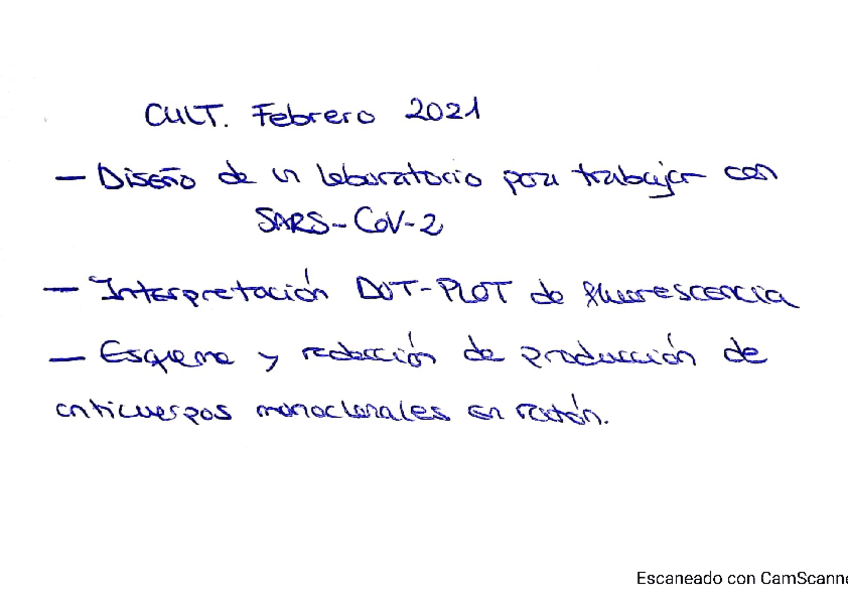 CULT. Febrero 2021
- Diseño de un laboratorio para trabajar con
SARS-CoV-2
- Interpretación DOT-PLOT de fluorescencia
- Esquema y redacción de producción de
anticuerpos monoclonales en ratón.
Escaneado con CamScanne